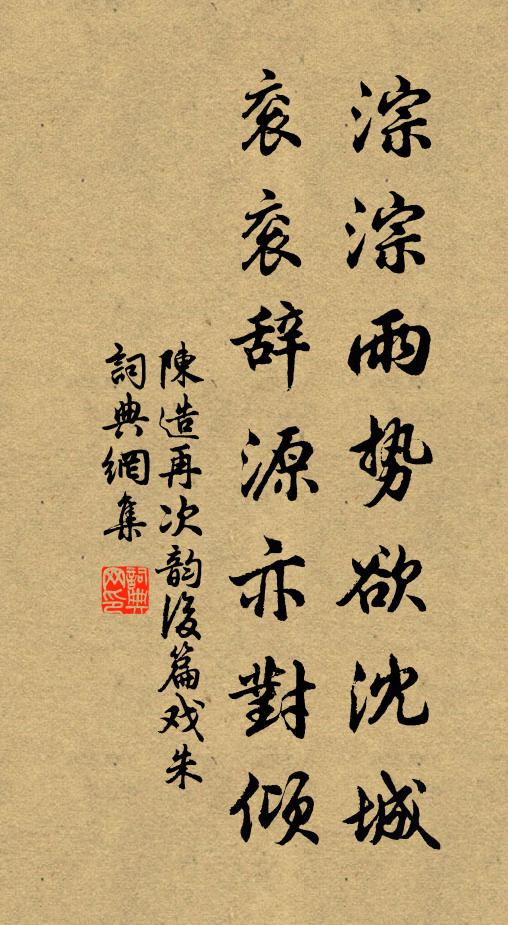 淙淙雨势欲沈城
衮衮辞源亦對傾
陳造再次韵後篇戏朱
詞典網集
詞典网印